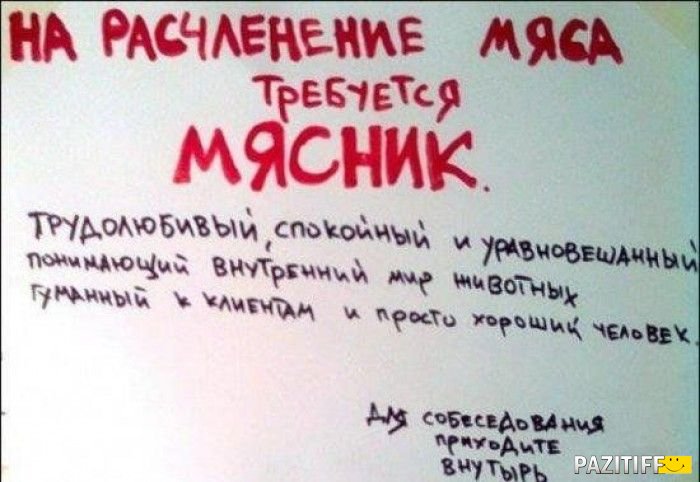 НА РАСЧЛЕНЕНИЕ МЯСА
ТРЕБУЕТСЯ
МЯСНИК.
ТРУДОЛЮБИВЫЙ, СПОКОЙНЫЙ И УРАВНОВЕШАННЫЙ
ПОНИМАЮЩИЙ ВНУТРЕННИЙ МИР ЖИВОТНЫХ
ГУМАННЫЙ К КЛИЕНТАМ И ПРОСТО ХОРОШИЙ ЧЕЛОВЕК.
ДЛЯ СОБЕСЕДОВАНИЯ
ПРИХОДИТЕ
ВНУТЫРЬ
PAZITIFF